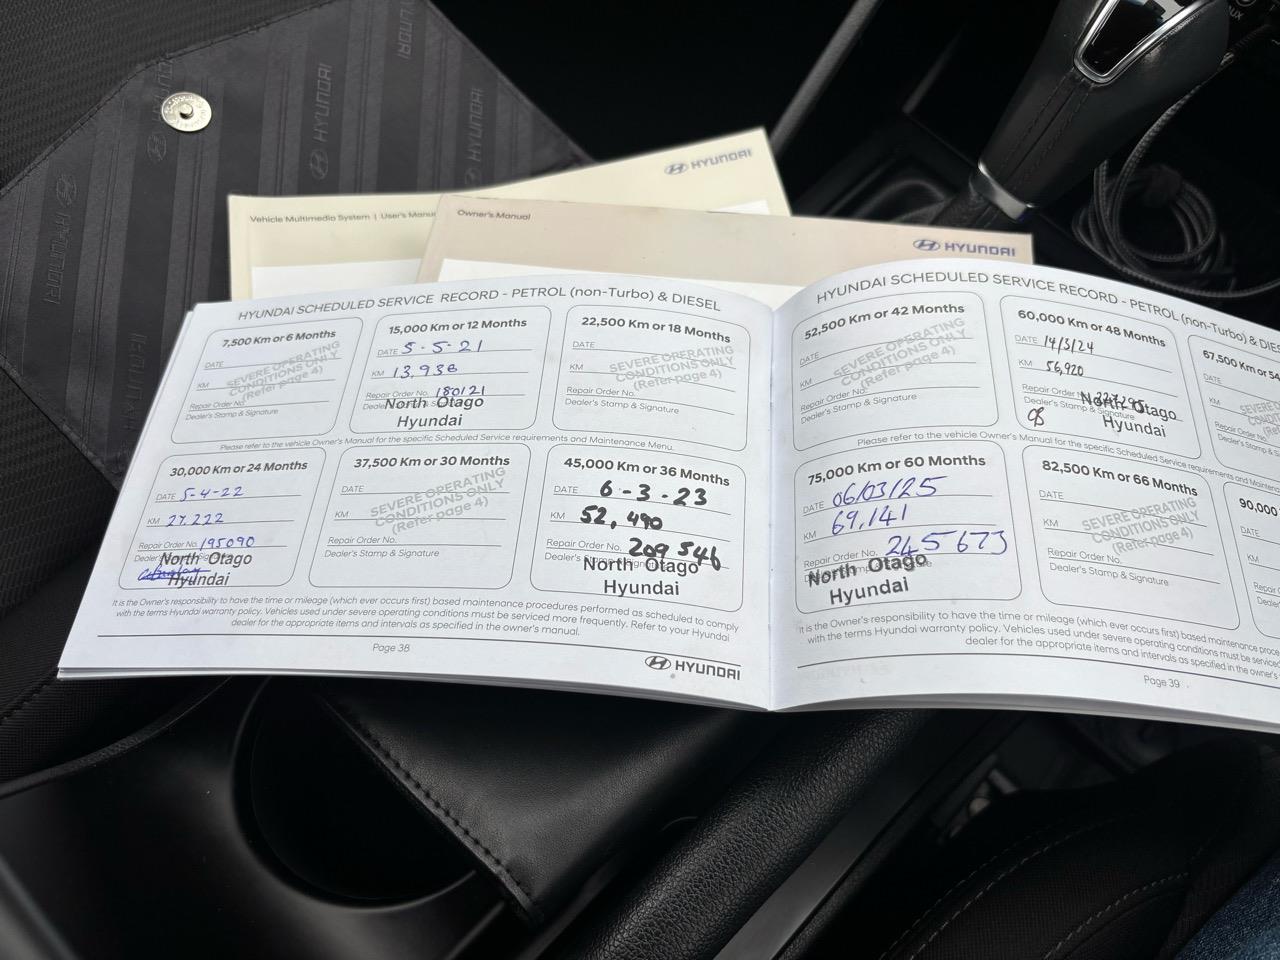 HYUNDAI
HYUNDAI
HYUNDAI
HYUNDAI
HYUNDAI
Vehicle Multimedia System | User's Manu
Owner's Manual
HYUNDAI
HYUNDAI SCHEDULED SERVICE RECORD - PETROL (non-Turbo) & DIESEL
7,500 Km or 6 Months
DATE
KM
SEVERE OPERATING
CONDITIONS ONLY
(Refer page 4)
Repair Order No.
Dealer's Stamp & Signature
15,000 Km or 12 Months
DATE 5-5-21
KM 13,938
Repair Order No. 180121
Dealer's Stamp & Signature
North Otago
Hyundai
22,500 Km or 18 Months
DATE
KM
SEVERE OPERATING
CONDITIONS ONLY
(Refer page 4)
Repair Order No.
Dealer's Stamp & Signature
Please refer to the vehicle Owner's Manual for the specific Scheduled Service requirements and Maintenance Menu.
30,000 Km or 24 Months
DATE 5-4-22
KM 27,222
Repair Order No. 195090
North Otago
Hyundai
37,500 Km or 30 Months
DATE
KM
SEVERE OPERATING
CONDITIONS ONLY
(Refer page 4)
Repair Order No.
Dealer's Stamp & Signature
45,000 Km or 36 Months
DATE 6-3-23
KM 52,490
Repair Order No. 209546
North Otago
Hyundai
It is the Owner's responsibility to have the time or mileage (which ever occurs first) based maintenance procedures performed as scheduled to comply
with the terms Hyundai warranty policy. Vehicles used under severe operating conditions must be serviced more frequently. Refer to your Hyundai
dealer for the appropriate items and intervals as specified in the owner's manual.
Page 38
HYUNDAI
HYUNDAI SCHEDULED SERVICE RECORD - PETROL (non-Turbo) & DIES
52,500 Km or 42 Months
DATE
KM
SEVERE OPERATING
CONDITIONS ONLY
(Refer page 4)
Repair Order No.
Dealer's Stamp & Signature
60,000 Km or 48 Months
DATE 14/3/24
KM 56,920
Repair Order No.
Dealer's Stamp & Signature
North Otago
Hyundai
67,500 Km or 54
DATE
KM
Repair Order No.
Dealer's Stamp & Sig
Please refer to the vehicle Owner's Manual for the specific Scheduled Service requirements and Maintenance
75,000 Km or 60 Months
DATE 06/03/25
KM 69,141
Repair Order No. 245673
North Otago
Hyundai
82,500 Km or 66 Months
DATE
KM
SEVERE OPERATING
CONDITIONS ONLY
(Refer page 4)
Repair Order No.
Dealer's Stamp & Signature
90,000
DATE
KM
It is the Owner's responsibility to have the time or mileage (which ever occurs first) based maintenance proce
with the terms Hyundai warranty policy. Vehicles used under severe operating conditions must be serviced
dealer for the appropriate items and intervals as specified in the owner's
Page 39